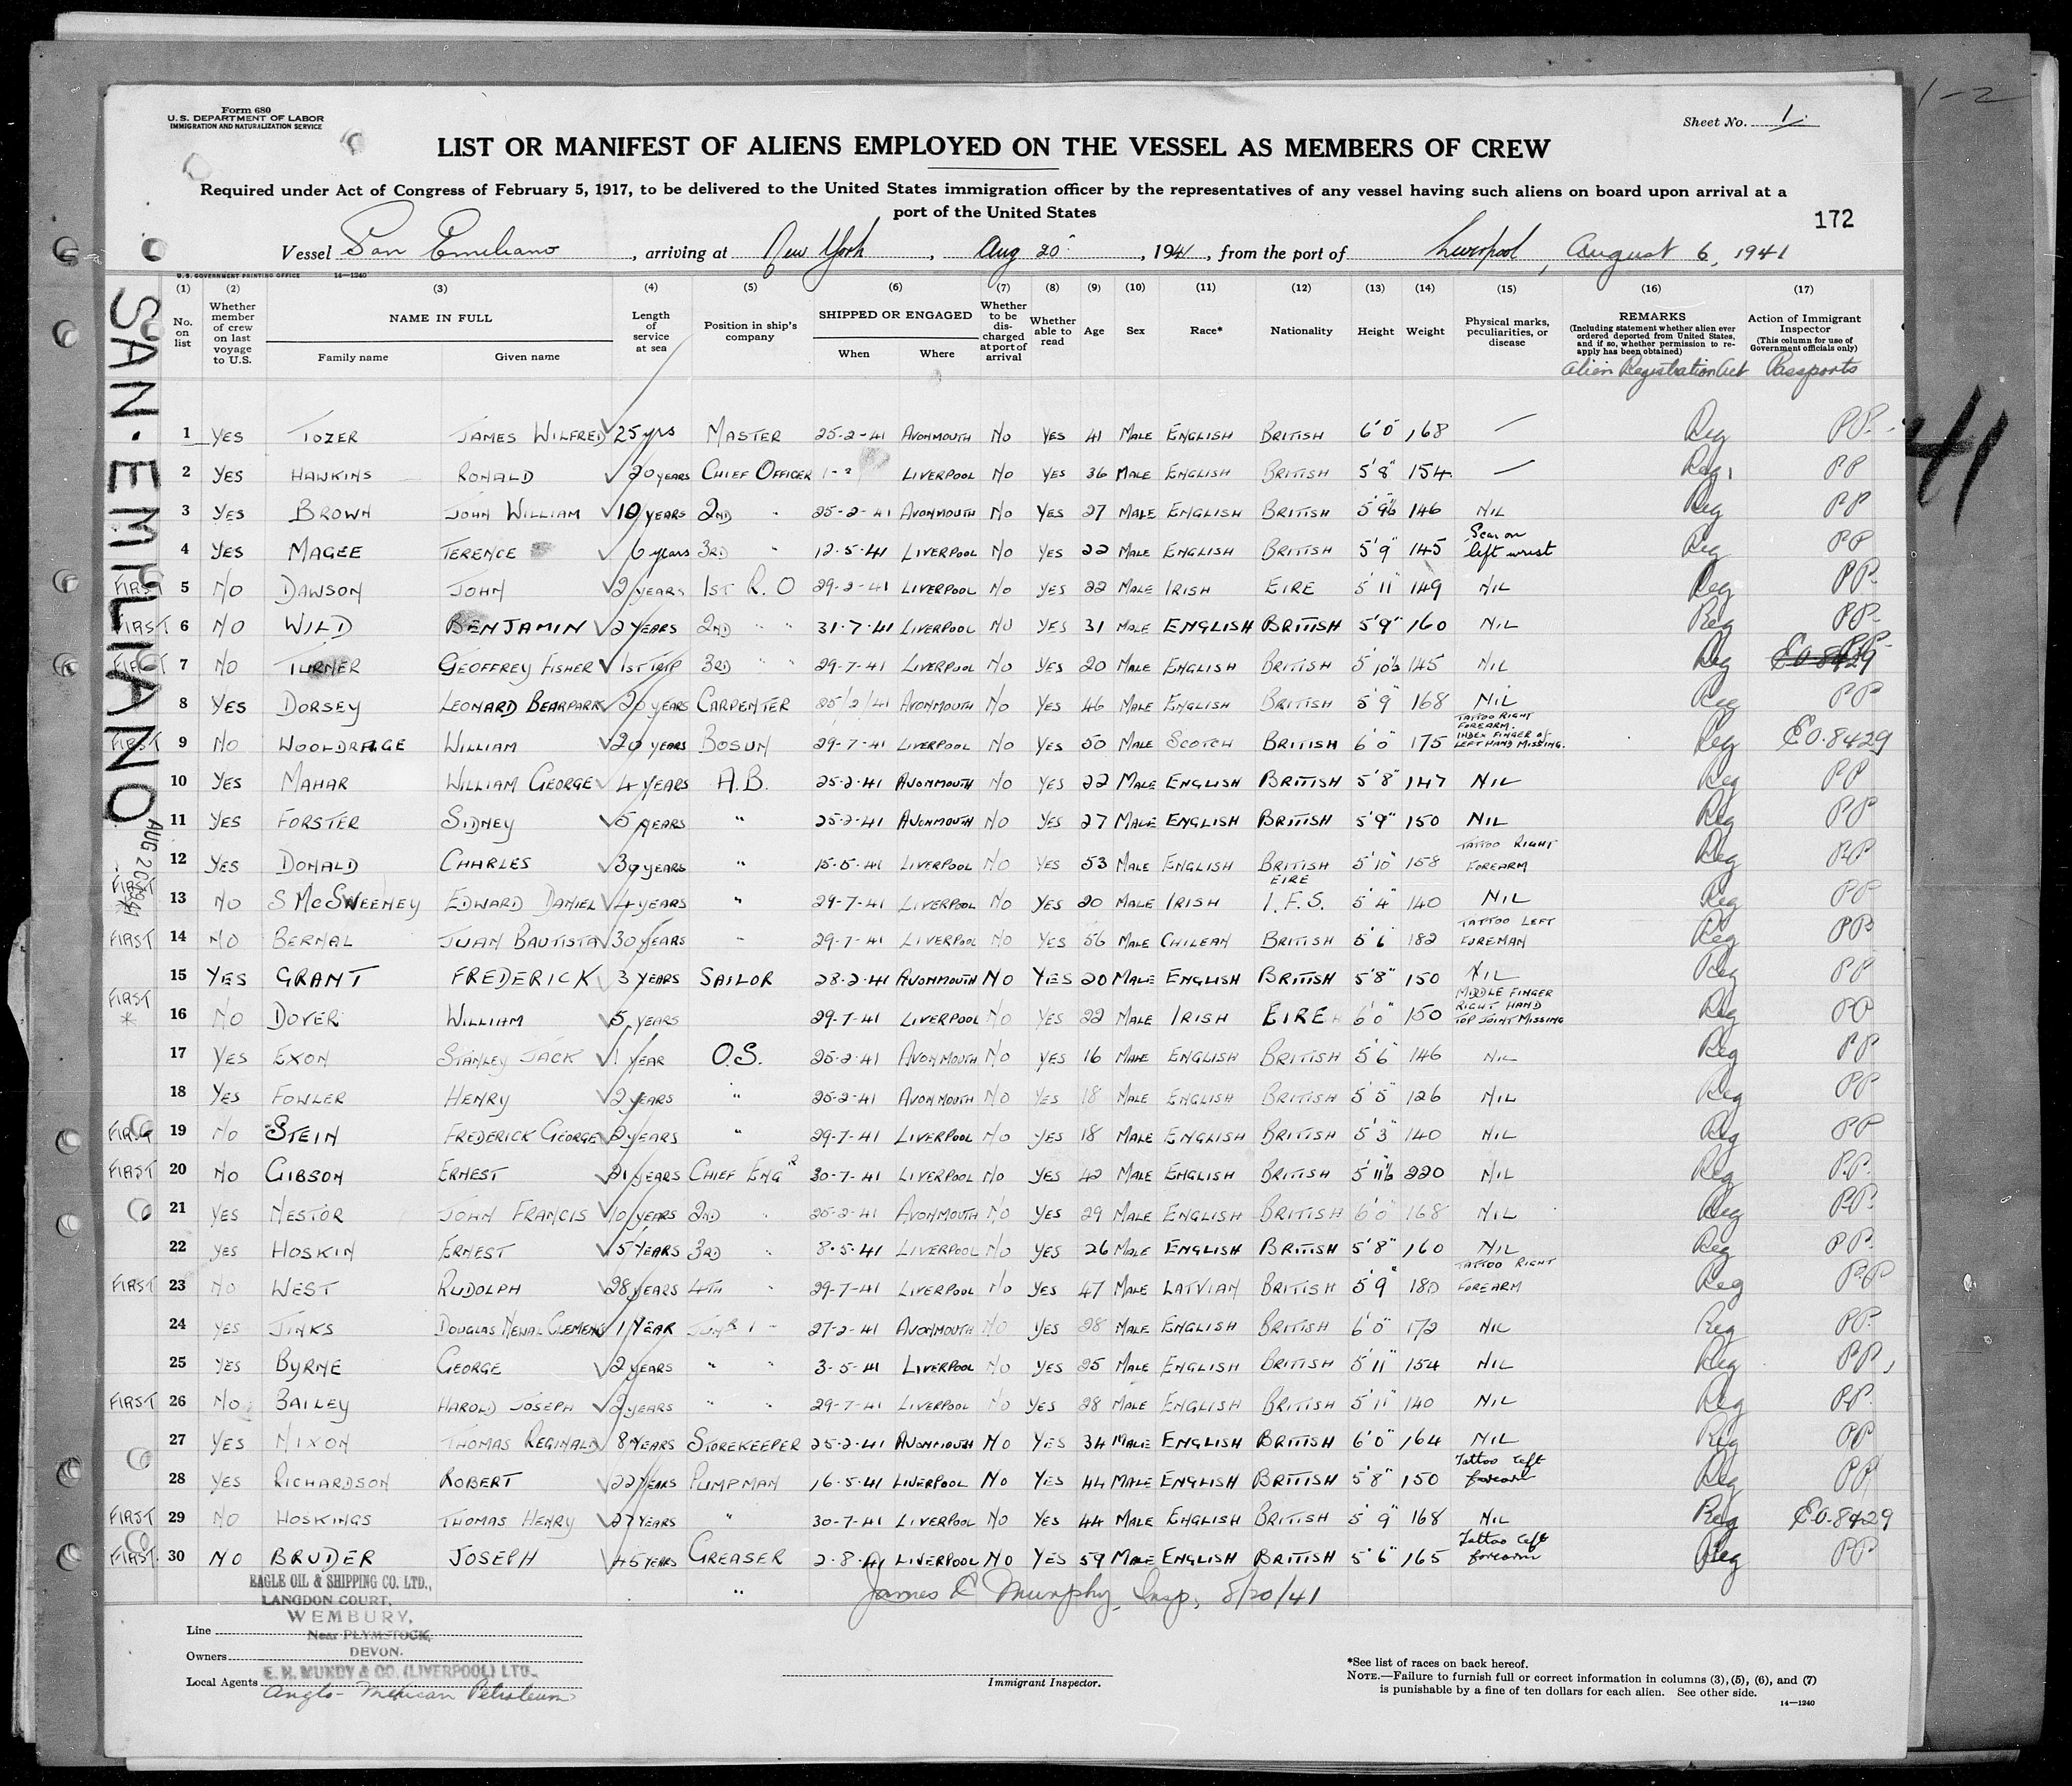 1-2
Form 680
U.S. DEPARTMENT OF LABOR
IMMIGRATION AND NATURALIZATION SERVICE
Sheet No. 1
LIST OR MANIFEST OF ALIENS EMPLOYED ON THE VESSEL AS MEMBERS OF CREW
Required under Act of Congress of February 5, 1917, to be delivered to the United States immigration officer by the representatives of any vessel having such aliens on board upon arrival at a
port of the United States
172
Vessel San Emiliano, arriving at New York, Aug 20, 1941, from the port of Liverpool, August 6, 1941
U.S. GOVERNMENT PRINTING OFFICE 14—1240
SAN·EMILIANO
AUG 20 1941
41
(1) (2) (3) (4) (5) (6) (7) (8) (9) (10) (11) (12) (13) (14) (15) (16) (17)
No. on list
Whether member of crew on last voyage to U.S.
NAME IN FULL
Family name Given name
Length of service at sea
Position in ship's company
SHIPPED OR ENGAGED
When Where
Whether to be discharged at port of arrival
Whether able to read
Age
Sex
Race*
Nationality
Height
Weight
Physical marks, peculiarities, or disease
REMARKS
(Including statement whether alien ever ordered deported from United States, and if so, whether permission to reapply has been obtained)
Alien Registration Act
Action of Immigrant Inspector
(This column for use of Government officials only)
Passports
1 YES TOZER JAMES WILFRED 25 yrs MASTER 25-2-41 AVONMOUTH NO YES 41 MALE ENGLISH BRITISH 6'0" 168 — Reg PP.
2 YES HAWKINS RONALD 20 YEARS CHIEF OFFICER LIVERPOOL NO YES 36 MALE ENGLISH BRITISH 5'8" 154 — Reg PP
3 YES BROWN JOHN WILLIAM 10 YEARS 2ND " 25-2-41 AVONMOUTH NO YES 27 MALE ENGLISH BRITISH 146 NIL Reg PP
4 YES MAGEE TERENCE 6 years 3RD " 12.5.41 LIVERPOOL NO YES 22 MALE ENGLISH BRITISH 5'9" 145 Scar on left wrist Reg PP
FIRST 5 NO DAWSON JOHN 2 YEARS 1ST R.O 29-2-41 LIVERPOOL NO YES 22 MALE IRISH EIRE 5'11" 149 NIL Reg PP.
FIRST 6 NO WILD BENJAMIN 2 YEARS 2ND " " 31.7.41 LIVERPOOL NO YES 31 MALE ENGLISH BRITISH 5'9" 160 NIL Reg PP.
FIRST 7 NO TURNER GEOFFREY FISHER 1ST TRIP 3RD " " 29-7-41 LIVERPOOL NO YES 20 MALE ENGLISH BRITISH 145 NIL Reg EO-8429 PP-
8 YES DORSEY LEONARD BEARPARK 20 YEARS CARPENTER 25/2/41 AVONMOUTH NO YES 46 MALE ENGLISH BRITISH 5'9" 168 NIL Reg PP
FIRST 9 NO WOOLDRAGE WILLIAM 20 YEARS BOSUN 29-7-41 LIVERPOOL NO YES 50 MALE SCOTCH BRITISH 6'0" 175 TATTOO RIGHT FOREARM. INDEX FINGER OF LEFT HAND MISSING. Reg EO.8429
10 YES MAHAR WILLIAM GEORGE 4 YEARS A.B. 25.2.41 AVONMOUTH NO YES 22 MALE ENGLISH BRITISH 5'8" 147 NIL Reg PP
11 YES FORSTER SIDNEY 5 YEARS " 25.2.41 AVONMOUTH NO YES 27 MALE ENGLISH BRITISH 5'9" 150 NIL Reg PP
12 YES DONALD CHARLES 30 YEARS " 15.5.41 LIVERPOOL NO YES 53 MALE ENGLISH BRITISH 5'10" 158 TATTOO RIGHT FOREARM Reg PP
FIRST * 13 NO S McSWEENEY EDWARD DANIEL 4 YEARS " 29-7-41 LIVERPOOL NO YES 20 MALE IRISH EIRE I.F.S. 5'4" 140 NIL Reg PP
FIRST 14 NO BERNAL JUAN BAUTISTA 30 YEARS " 29-7-41 LIVERPOOL NO YES 56 MALE CHILEAN BRITISH 5'6" 182 TATTOO LEFT FOREMAN Reg PP
15 YES GRANT FREDERICK 3 YEARS SAILOR 28.2.41 AVONMOUTH NO YES 20 MALE ENGLISH BRITISH 5'8" 150 NIL Reg PP
FIRST * 16 NO DOVER WILLIAM 5 YEARS 29.7.41 LIVERPOOL NO YES 22 MALE IRISH EIRE 6'0" 150 MIDDLE FINGER RIGHT HAND TOP JOINT MISSING Reg PP
17 YES EXON STANLEY JACK 1 YEAR O.S. 25-2-41 AVONMOUTH NO YES 16 MALE ENGLISH BRITISH 5'6" 146 NIL Reg PP
18 YES FOWLER HENRY 2 YEARS " 25-2-41 AVONMOUTH NO YES 18 MALE ENGLISH BRITISH 5'5" 126 NIL Reg PP
FIRST 19 NO STEIN FREDERICK GEORGE 2 YEARS " 29-7-41 LIVERPOOL NO YES 18 MALE ENGLISH BRITISH 5'3" 140 NIL Reg PP
FIRST 20 NO GIBSON ERNEST 21 YEARS CHIEF ENGR 30-7-41 LIVERPOOL NO YES 42 MALE ENGLISH BRITISH 220 NIL Reg P.P.
21 YES NESTOR JOHN FRANCIS 10 YEARS 2ND " 25-2-41 AVONMOUTH NO YES 29 MALE ENGLISH BRITISH 6'0" 168 NIL Reg PP.
22 YES HOSKIN ERNEST 5 YEARS 3RD " 8.5.41 LIVERPOOL NO YES 26 MALE ENGLISH BRITISH 5'8" 160 NIL Reg PP.
FIRST 23 NO WEST RUDOLPH 28 YEARS 4TH " 29-7-41 LIVERPOOL NO YES 47 MALE LATVIAN BRITISH 5'9" 180 TATTOO RIGHT FOREARM Reg PP
24 YES JINKS DOUGLAS CLEMENS 1 YEAR 27-2-41 AVONMOUTH NO YES 28 MALE ENGLISH BRITISH 6'0" 172 NIL Reg PP.
25 YES BYRNE GEORGE 2 YEARS " " 3-5-41 LIVERPOOL NO YES 25 MALE ENGLISH BRITISH 5'11" 154 NIL Reg PP,
FIRST 26 NO BAILEY HAROLD JOSEPH 2 YEARS " " 29-7-41 LIVERPOOL NO YES 28 MALE ENGLISH BRITISH 5'11" 140 NIL Reg PP.
27 YES NIXON THOMAS REGINALD 8 YEARS STOREKEEPER 25-2-41 AVONMOUTH NO YES 34 MALE ENGLISH BRITISH 6'0" 164 NIL Reg PP
28 YES RICHARDSON ROBERT 22 YEARS PUMPMAN 16.5.41 LIVERPOOL NO YES 44 MALE ENGLISH BRITISH 5'8" 150 Tattoo left forearm Reg PP
FIRST 29 NO HOSKINGS THOMAS HENRY 27 YEARS " 30-7-41 LIVERPOOL NO YES 44 MALE ENGLISH BRITISH 5'9" 168 NIL Reg EO.8429
FIRST. 30 NO BRUDER JOSEPH 45 YEARS GREASER 2.8.41 LIVERPOOL NO YES 59 MALE ENGLISH BRITISH 5'6" 165 Tattoo left forearm Reg PP
" James E Murphy, Insp, 8/20/41
EAGLE OIL & SHIPPING CO. LTD.,
LANGDON COURT,
WEMBURY,
Line Near PLYMSTOCK,
Owners DEVON.
E. H. MUNDY & CO. (LIVERPOOL) LTD.
Local Agents Anglo-Mexican Petroleum
Immigrant Inspector.
*See list of races on back hereof.
NOTE.—Failure to furnish full or correct information in columns (3), (5), (6), and (7)
is punishable by a fine of ten dollars for each alien. See other side.
14—1240